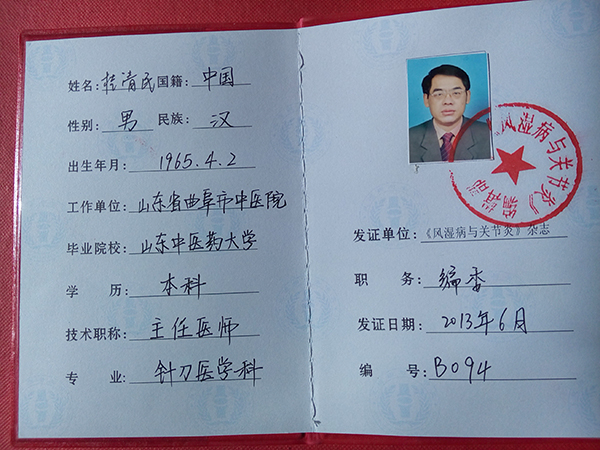 姓名: 桂清民 国籍: 中国
性别: 男 民族: 汉
出生年月: 1965.4.2
工作单位: 山东省曲阜市中医院
毕业院校: 山东中医药大学
学 历: 本科
技术职称: 主任医师
专 业: 针刀医学科
《风湿病与关节炎》
编辑部
发证单位: 《风湿病与关节炎》杂志
职 务: 编委
发证日期: 2013年6月
编 号: B094